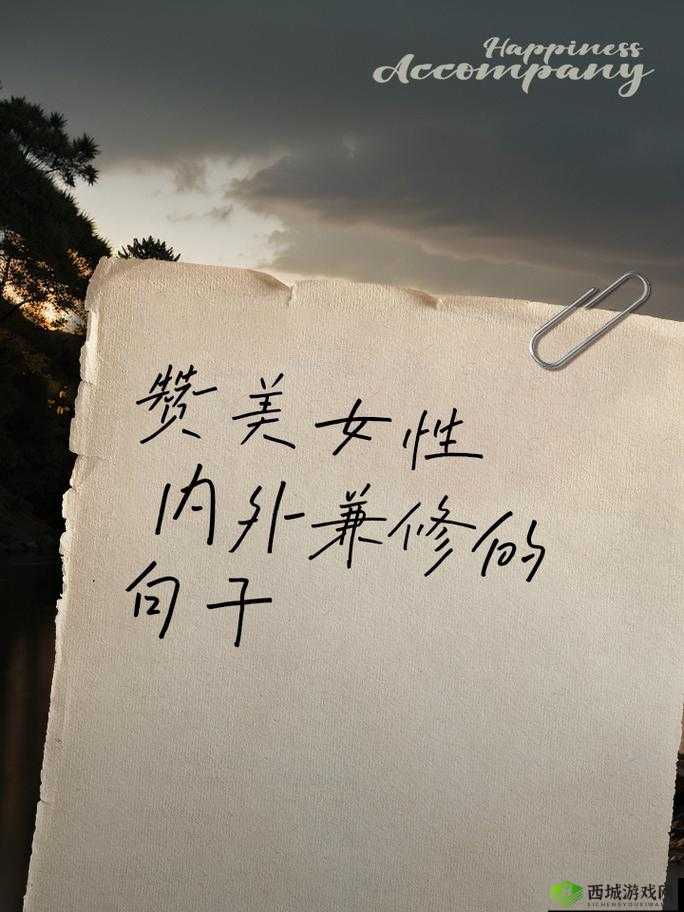 Happiness
Accompany
赞美女性
内外兼修的
句子
西城游戏网